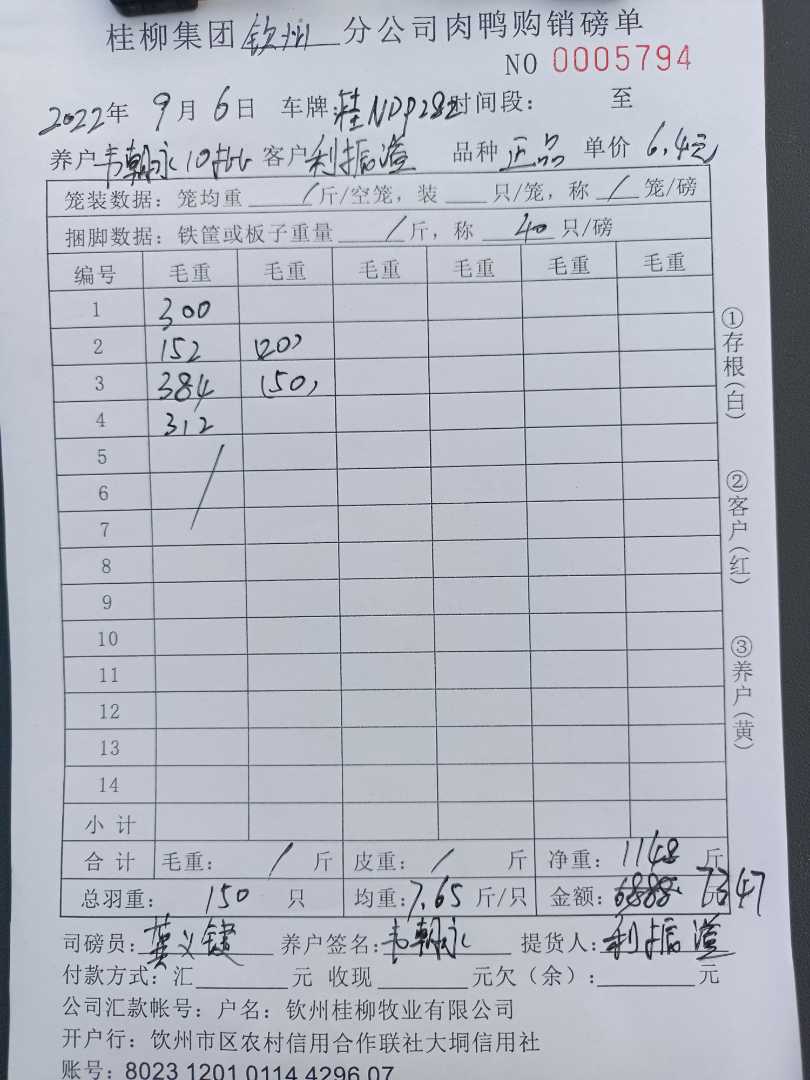 桂柳集团钦州分公司肉鸭购销磅单
NO 0005794
2022年9月6日 车牌:桂NDP282 时间段: 至
养户韦朝永10批 客户利振溢 品种 正品 单价 6.4元
笼装数据: 笼均重 / 斤/空笼, 装 只/笼, 称 / 笼/磅
捆脚数据: 铁筐或板子重量 / 斤, 称 40 只/磅
编号 毛重 毛重 毛重 毛重 毛重 毛重
1 300
2 152 (20)
3 384 (50)
4 312
5 /
6
7
8
9
10
11
12
13
14
小计
合计 毛重: / 斤 皮重: / 斤 净重: 1148 斤
总羽重: 150 只 均重: 7.65 斤/只 金额: 6888 7347
司磅员: 龚义键 养户签名: 韦朝永 提货人: 利振溢
付款方式: 汇 元 收现 元欠(余): 元
公司汇款帐号: 户名: 钦州桂柳牧业有限公司
开户行: 钦州市区农村信用合作联社大垌信用社
账号: 8023 1201 0114 4296 07
①存根(白)
②客户(红)
③养户(黄)